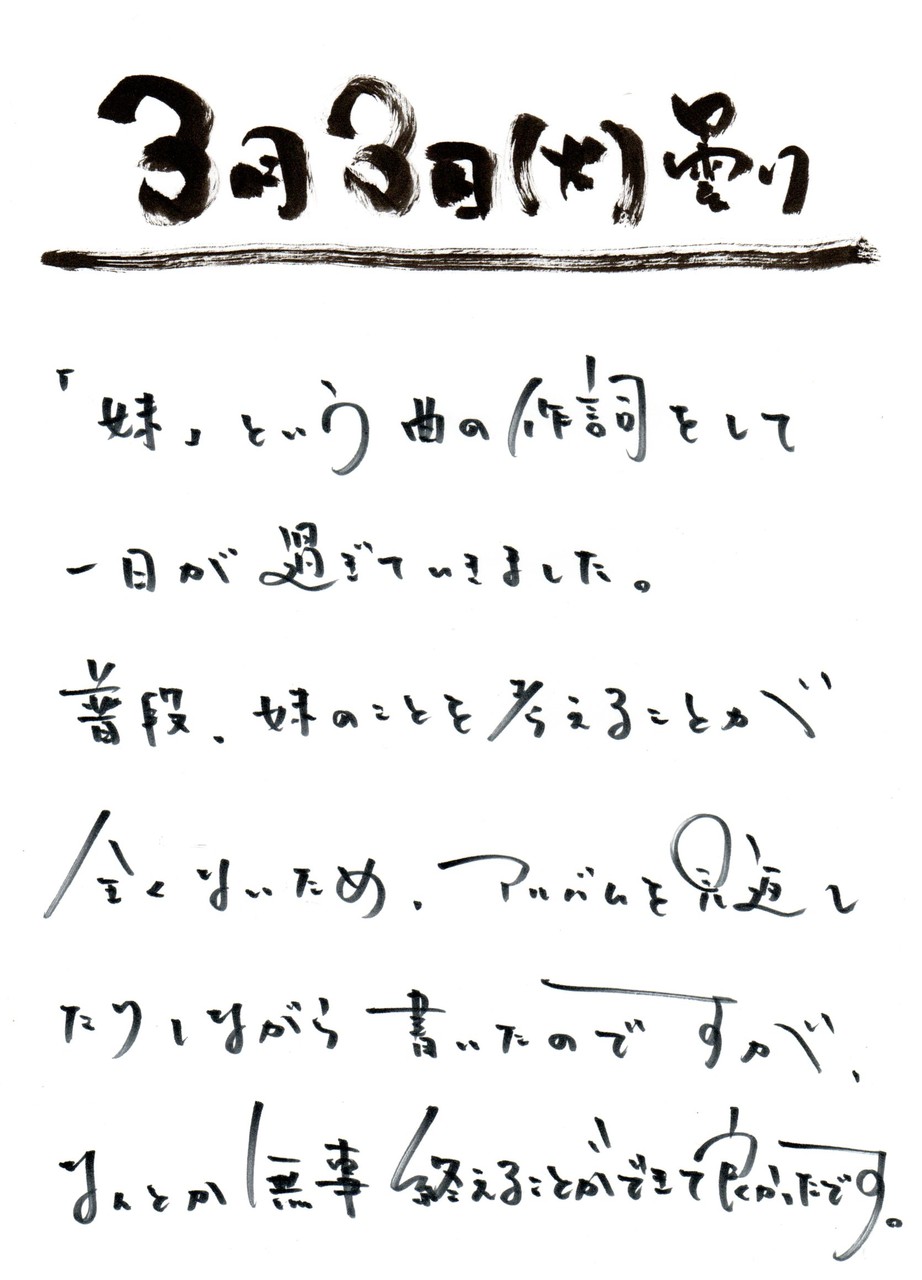 3月3日(火)曇り
「妹」という曲の作詞をして
一日が過ぎていきました。
普段、妹のことを考えることが
全くないため、アルバムを見返し
たりしながら書いたのですが、
なんとか無事終えることができて良かったです。